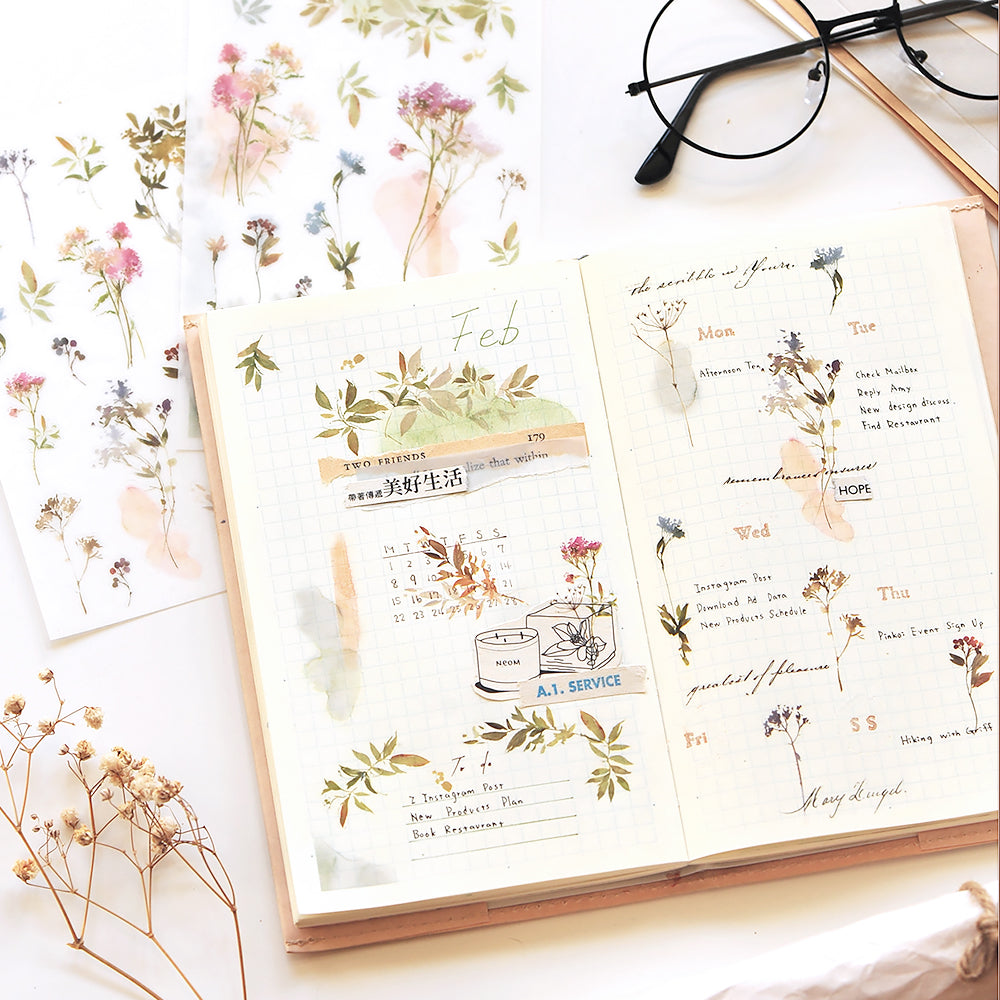 Feb
TWO FRIENDS 179
lize that within
帶著傳遞 美好生活
M T W T F S S
1 2 3 6 7
8 9 10 14
15 16 21
22 23 24 25 26 27 28
NEOM
A.1. SERVICE
To do
Instagram Post
New Products Plan
Book Restaurant
the scribble in Yours.
Mon
Afternoon Tea
Tue
Check Mailbox
Reply Amy
New design discuss.
Find Restaurant
remembrances ensures
HOPE
Wed
Instagram Post
Download Ad Data
New Products Schedule
Thu
Pinkoi Event Sign Up
greatest of pleasure
Fri
S S
Hiking with Griff